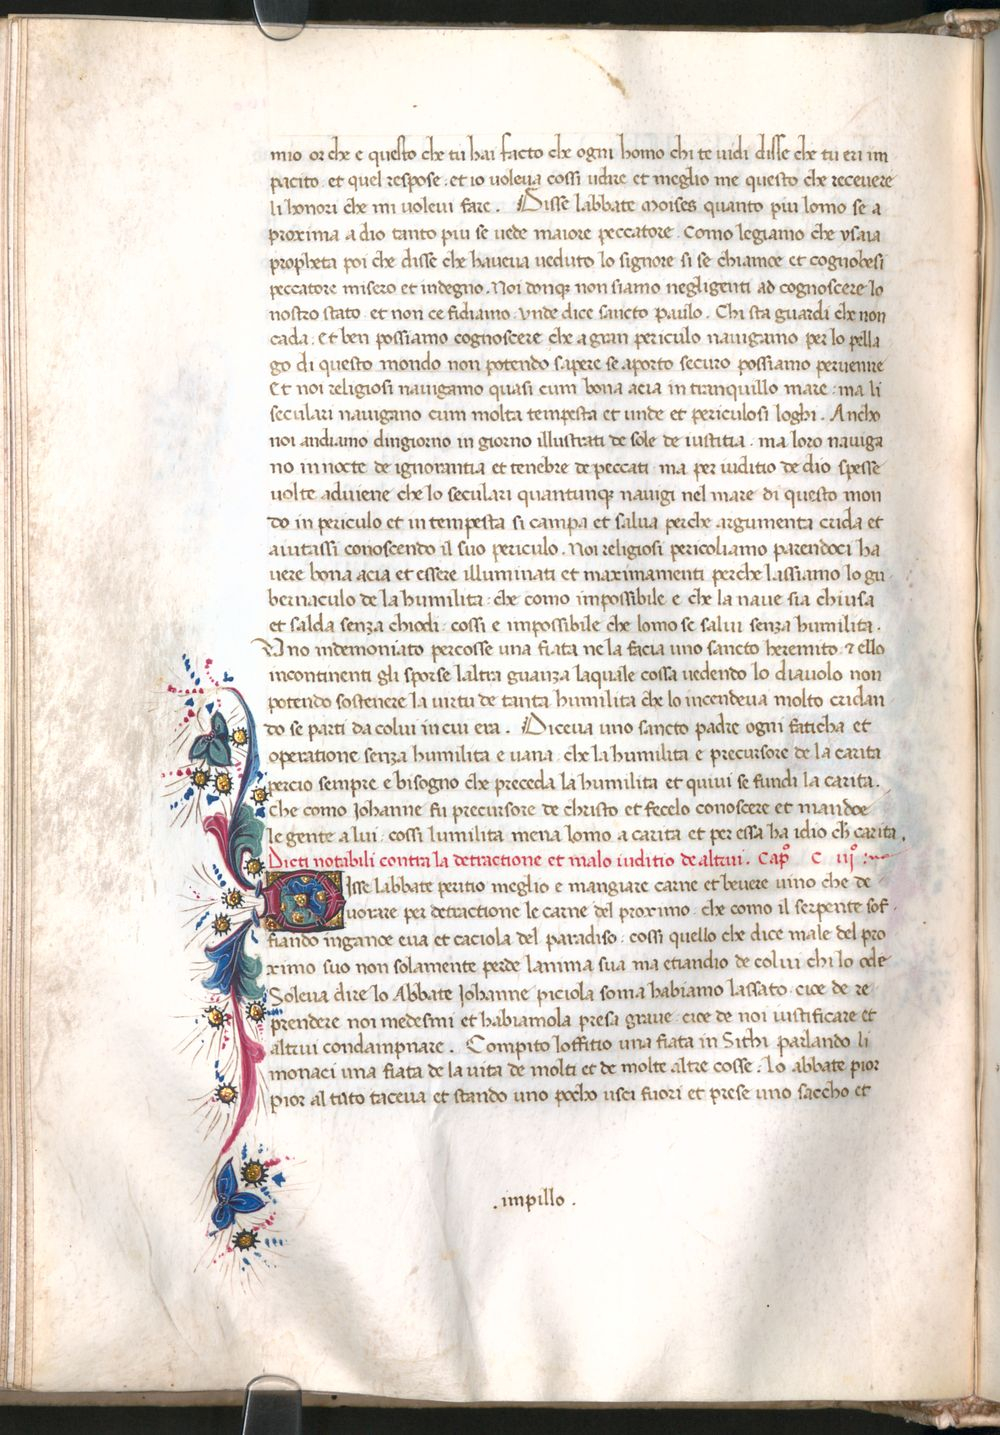 mio or che e questo che tu hai facto che ogni homo chi te uidi disse che tu eri im
pacito. et quel respose. et io voleua cossi vdire et meglio me questo che receuere
li honori che mi uoleui fare. Disse labbate moises quanto piu lomo se a
proxima a dio tanto piu se uede maiore peccatore. Como legiamo che ysaia
propheta poi che disse che haueua ueduto lo signore si se chiamoe et cognobesi
peccatore misero et indegno. Noi donqȝ non siamo negligenti ad cognoscere lo
nostro stato. et non ce fidiamo. vnde dice sancto paulo. Chi sta guardi che non
cada. et ben possiamo cognoscere che a gran periculo nauigamo per lo pella
go di questo mondo non potendo sapere se aporto securo possiamo peruenire
Et noi religiosi nauigamo quasi cum bona aeia in tranquillo mare. ma li
seculari nauigano cum molta tempesta et unde et periculosi loghi. Ancho
noi andiamo dingiorno in giorno illustrati de sole de iustitia. ma loro nauiga
no in nocte de ignorantia et tenebre de peccati. ma per iuditio de dio spesse
uolte aduiene che lo seculari quantunqȝ nauigi nel mare di questo mon
do in periculo et in tempesta si campa et salua perche argumenta crida et
aiutassi conoscendo il suo periculo. Noi religiosi pericoliamo parendoci ha
uere bona aeia et essere illuminati et maximamenti perche lassiamo lo gu
bernaculo de la humilita. che como impossibile e che la naue sia chiusa
et salda senza chiodi. cossi e impossibile che lomo se salui senza humilita.
Uno indemoniato percosse una fiata ne la facia uno sancto heremito. ⁊ ello
incontinenti gli sporse laltra guanza laquale cossa uedendo lo diauolo non
potendo sostenere la uirtu de tanta humilita che lo incendeua molto cridan
do se parti da colui in cui era. Diceua uno sancto padre ogni faticha et
operatione senza humilita e uana. che la humilita e precursore de la carita
percio sempre e bisogno che preceda la humilita et quiui se fundi la carita.
che como Johanne fu precursore de christo et fecelo conoscere et mandoe
le gente a lui. cossi lumilita mena lomo a carita et per essa ha idio ch̄ carita.
Dicti notabili contra la detractione et malo iuditio de altrui. Capº C iijº
Disse labbate peritio meglio e mangiare carne et beuere uino che de
uorare per detractione le carne del proximo. che como il serpente sof
fiando inganoe eua et caciola del paradiso. cossi quello che dice male del pro
ximo suo non solamente perde lanima sua ma etiandio de colui chi lo ode
Soleua dire lo Abbate Johanne piciola soma habiamo lassato. cioe de re
prendere noi medesmi et habiamola presa graue. cioe de noi iustificare et
altrui condampnare. Compito loffitio una fiata in Sithi parlando li
monaci una fiata de la uita de molti et de molte altre cosse. Lo abbate pior
pior al tuto taceua et stando uno pocho usci fuori et prese uno saccho et
. impillo .